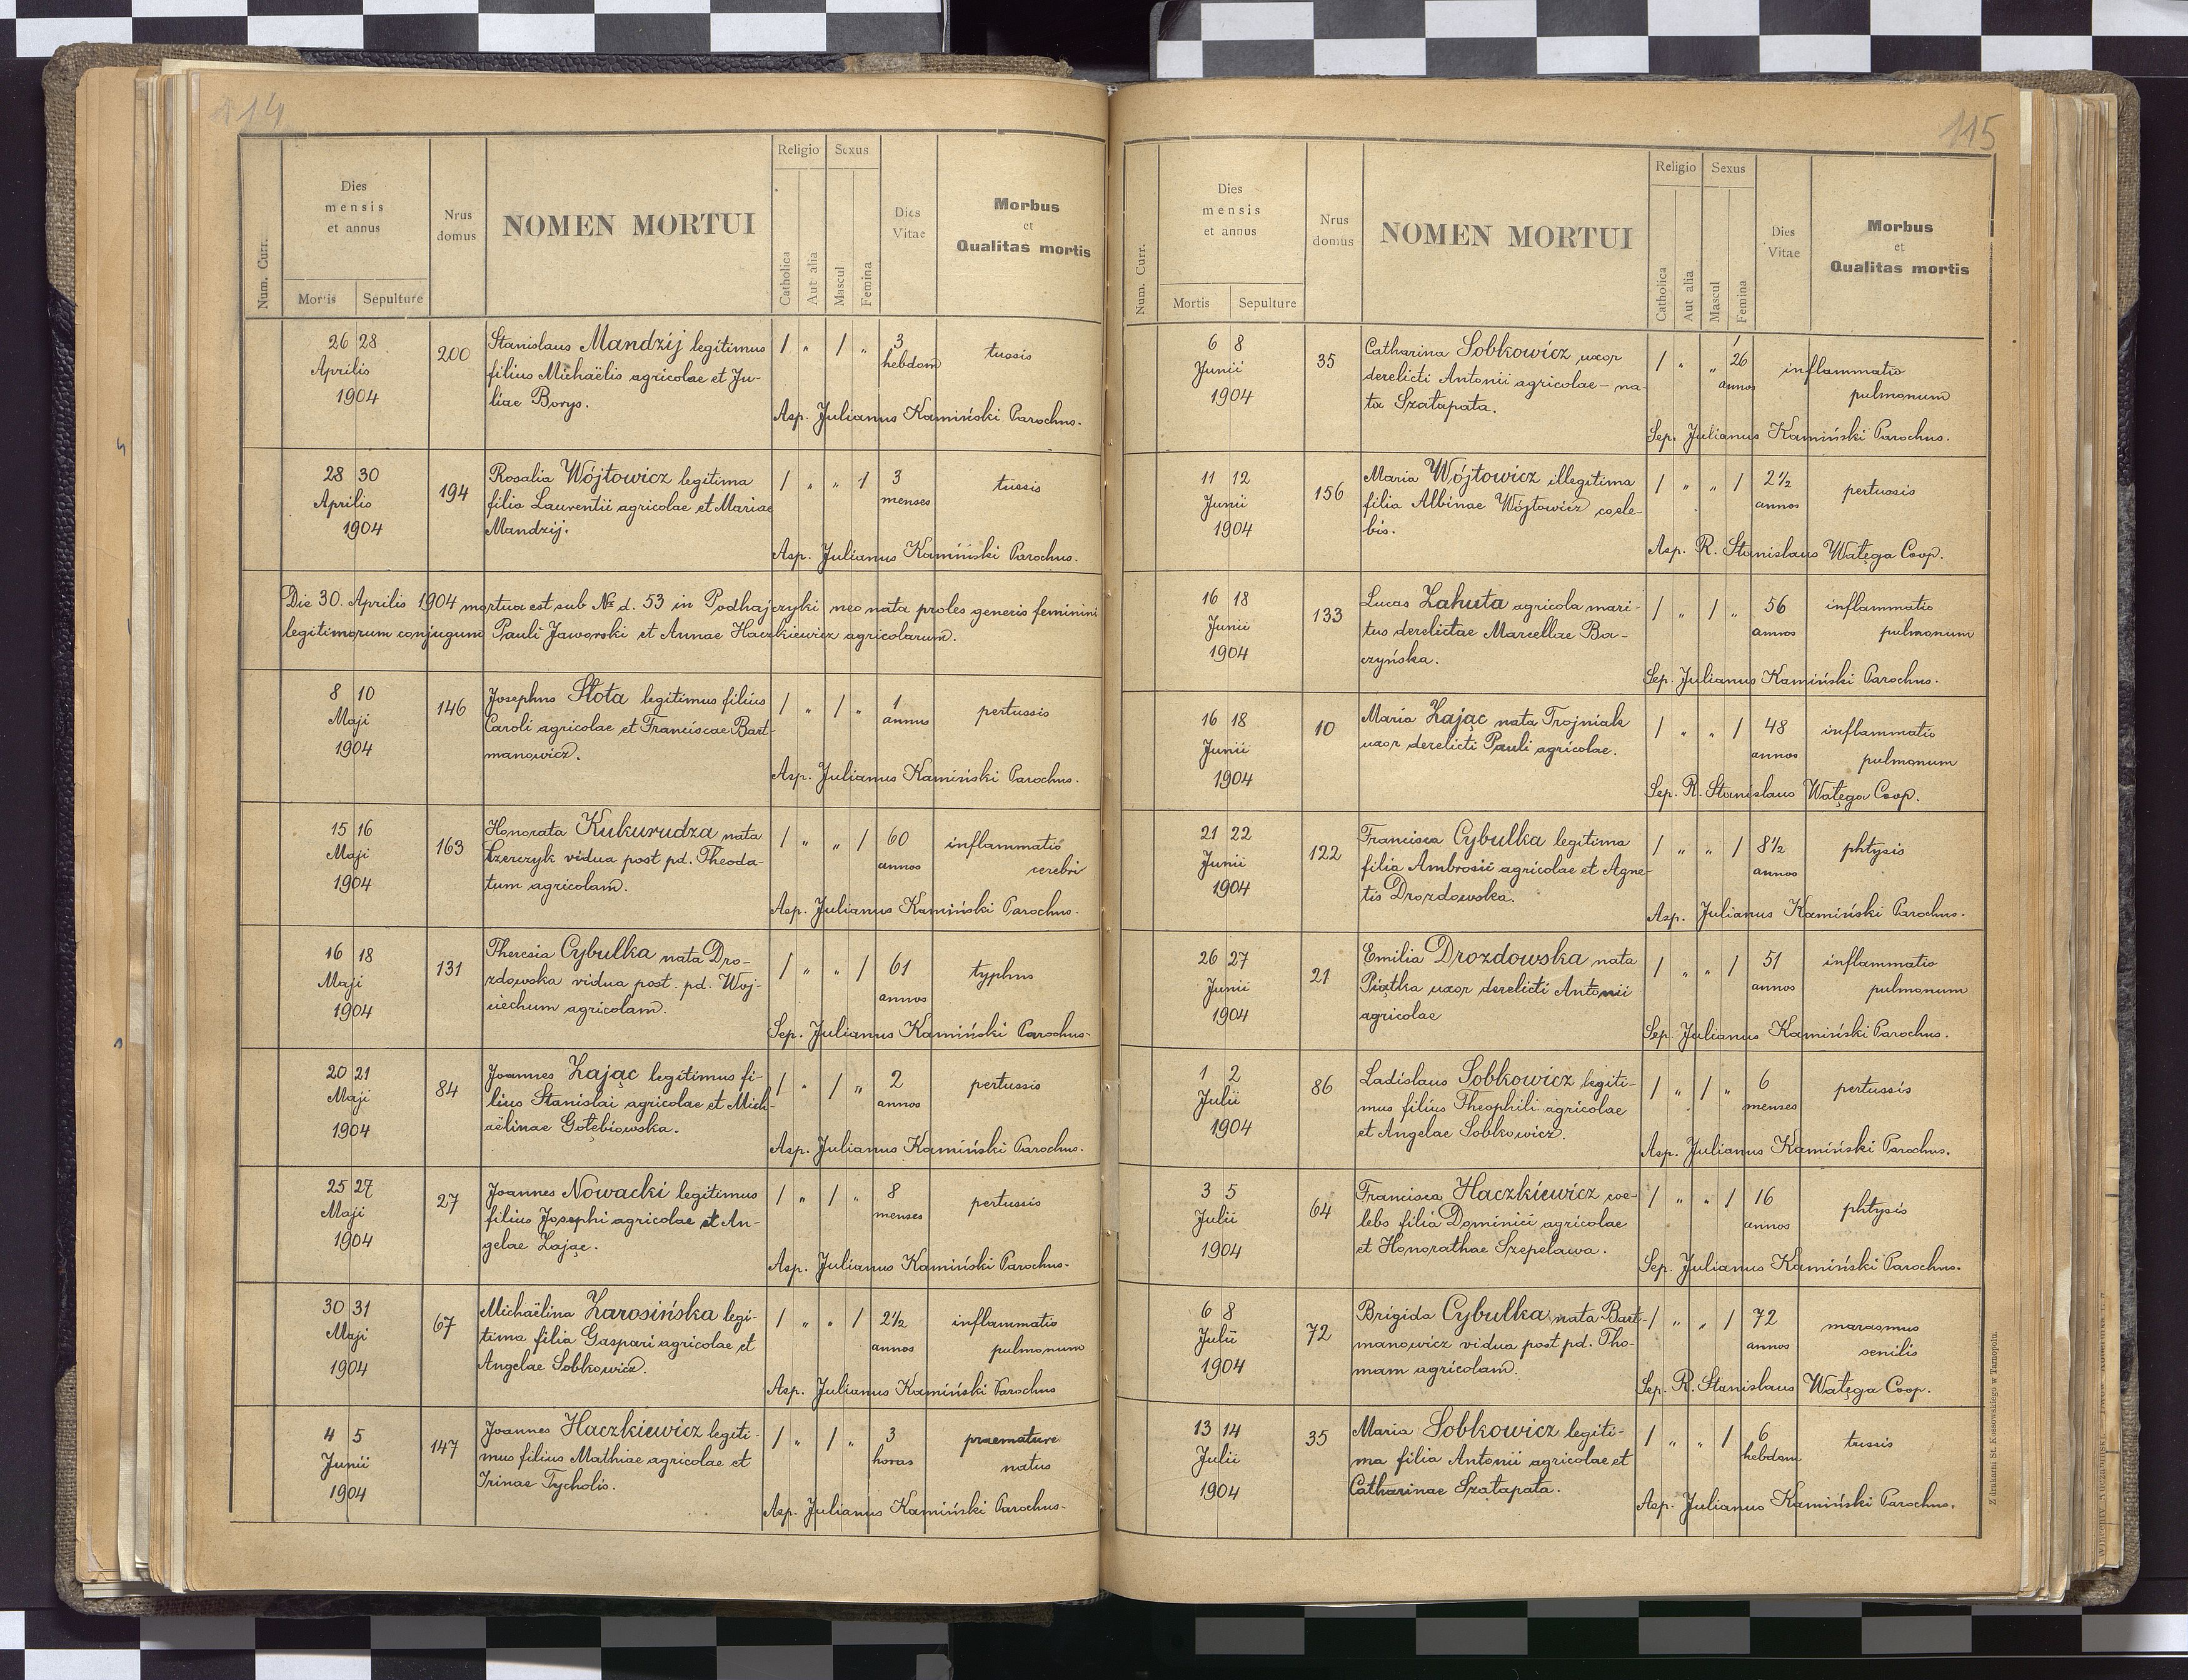 114
Num. Curr.
Dies
mensis
et annus
Mortis Sepulture
Nrus
domus
NOMEN MORTUI
Religio Sexus
Catholica
Aut alia
Mascul
Femina
Dies
Vitae
Morbus
et
Qualitas mortis
26 28
Aprilis
1904
200
Stanislaus Mandzij legitimus
filius Michaëlis agricolae et Ju-
liae Borys.
1 " 1 "
3
hebdom
tussis
Asp. Julianus Kamiński Parochus.
28 30
Aprilis
1904
194
Rosalia Wójtowicz legitima
filia Laurentii agricolae et Mariae
Mandzij.
1 " " 1
3
menses
tussis
Asp. Julianus Kamiński Parochus.
Die 30. Aprilis 1904 mortua est sub № d. 53 in Podhajczyki neonata proles generis feminini
legitimorum conjugum Pauli Jaworski et Annae Haczkiewicz agricolarum.
8 10
Maji
1904
146
Josephus Słota legitimus filius
Caroli agricolae et Franciscae Bart-
manowicz.
1 " 1 "
1
annus
pertussis
Asp. Julianus Kamiński Parochus.
15 16
Maji
1904
163
Honorata Kukurudza nata
vidua post pd. Theoda-
tum agricolam.
1 " " 1
60
annos
inflammatio
cerebri
Asp. Julianus Kamiński Parochus.
16 18
Maji
1904
131
Theresia Cybulka nata Dro-
zdowska vidua post. pd. Woj-
ciechum agricolam.
1 " " 1
61
annos
typhus
Sep. Julianus Kamiński Parochus.
20 21
Maji
1904
84
Joannes Zając legitimus fi-
lius Stanislai agricolae et Mich-
aëlinae Gołębiowska.
1 " 1 "
2
annos
pertussis
Asp. Julianus Kamiński Parochus.
25 27
Maji
1904
27
Joannes Nowacki legitimus
filius Josephi agricolae et An-
gelae Zając.
1 " 1 "
8
menses
pertussis
Asp. Julianus Kamiński Parochus.
30 31
Maji
1904
67
Michaëlina Zarosińska legi-
tima filia Gaspari agricolae et
Angelae Sobkowicz.
1 " " 1
2½
annos
inflammatio
pulmonum
Asp. Julianus Kamiński Parochus
4 5
Junii
1904
147
Joannes Haczkiewicz legiti-
mus filius Mathiae agricolae et
Irinae Tycholis.
1 " 1 "
3
horas
praemature
natus
Asp. Julianus Kamiński Parochus.
115
Num. Curr.
Dies
mensis
et annus
Mortis Sepulture
Nrus
domus
NOMEN MORTUI
Religio Sexus
Catholica
Aut alia
Mascul
Femina
Dies
Vitae
Morbus
et
Qualitas mortis
6 8
Junii
1904
35
Catharina Sobkowicz uxor
derelicti Antonii agricolae - na-
ta Szałapata.
1 " " 1
26
annos
inflammatio
pulmonum
Sep. Julianus Kamiński Parochus.
11 12
Junii
1904
156
Maria Wójtowicz illegitima
filia Albinae Wójtowicz coele-
bis.
1 " " 1
2½
annos
pertussis
Asp. R. Stanislaus Watęga Coop.
16 18
Junii
1904
133
Lucas Zahuta agricola mari-
tus derelictae Marcellae Ba-
czyńska.
1 " 1 "
56
annos
inflammatio
pulmonum
Sep. Julianus Kamiński Parochus.
16 18
Junii
1904
10
Maria Zając nata Trojniak
uxor derelicti Pauli agricolae.
1 " " 1
48
annos
inflammatio
pulmonum
Sep. R. Stanislaus Watęga Coop.
21 22
Junii
1904
122
Francisca Cybulka legitima
filia Ambrosii agricolae et Agne-
tis Drozdowska.
1 " " 1
8½
annos
phtysis
Asp. Julianus Kamiński Parochus.
26 27
Junii
1904
21
Emilia Drozdowska nata
Piątka uxor derelicti Antonii
agricolae
1 " " 1
51
annos
inflammatio
pulmonum
Sep. Julianus Kamiński Parochus.
1 2
Julii
1904
86
Ladislaus Sobkowicz legiti-
mus filius Theophili agricolae
et Angelae Sobkowicz.
1 " 1 "
6
menses
pertussis
Asp. Julianus Kamiński Parochus.
3 5
Julii
1904
64
Francisca Haczkiewicz coe-
lebs filia Dominici agricolae
et Honorathae Szepelawa.
1 " " 1
16
annos
phtysis
Sep. Julianus Kamiński Parochus.
6 8
Julii
1904
72
Brigida Cybulka nata Bart-
manowicz vidua post pd. Tho-
mam agricolam.
1 " " 1
72
annos
marasmus
senilis
Sep. R. Stanislaus Watęga Coop.
13 14
Julii
1904
35
Maria Sobkowicz legiti-
ma filia Antonii agricolae et
Catharinae Szałapata.
1 " " 1
6
hebdom
tussis
Asp. Julianus Kamiński Parochus.
Z drukarni St. Kossowskiego w Tarnopolu.